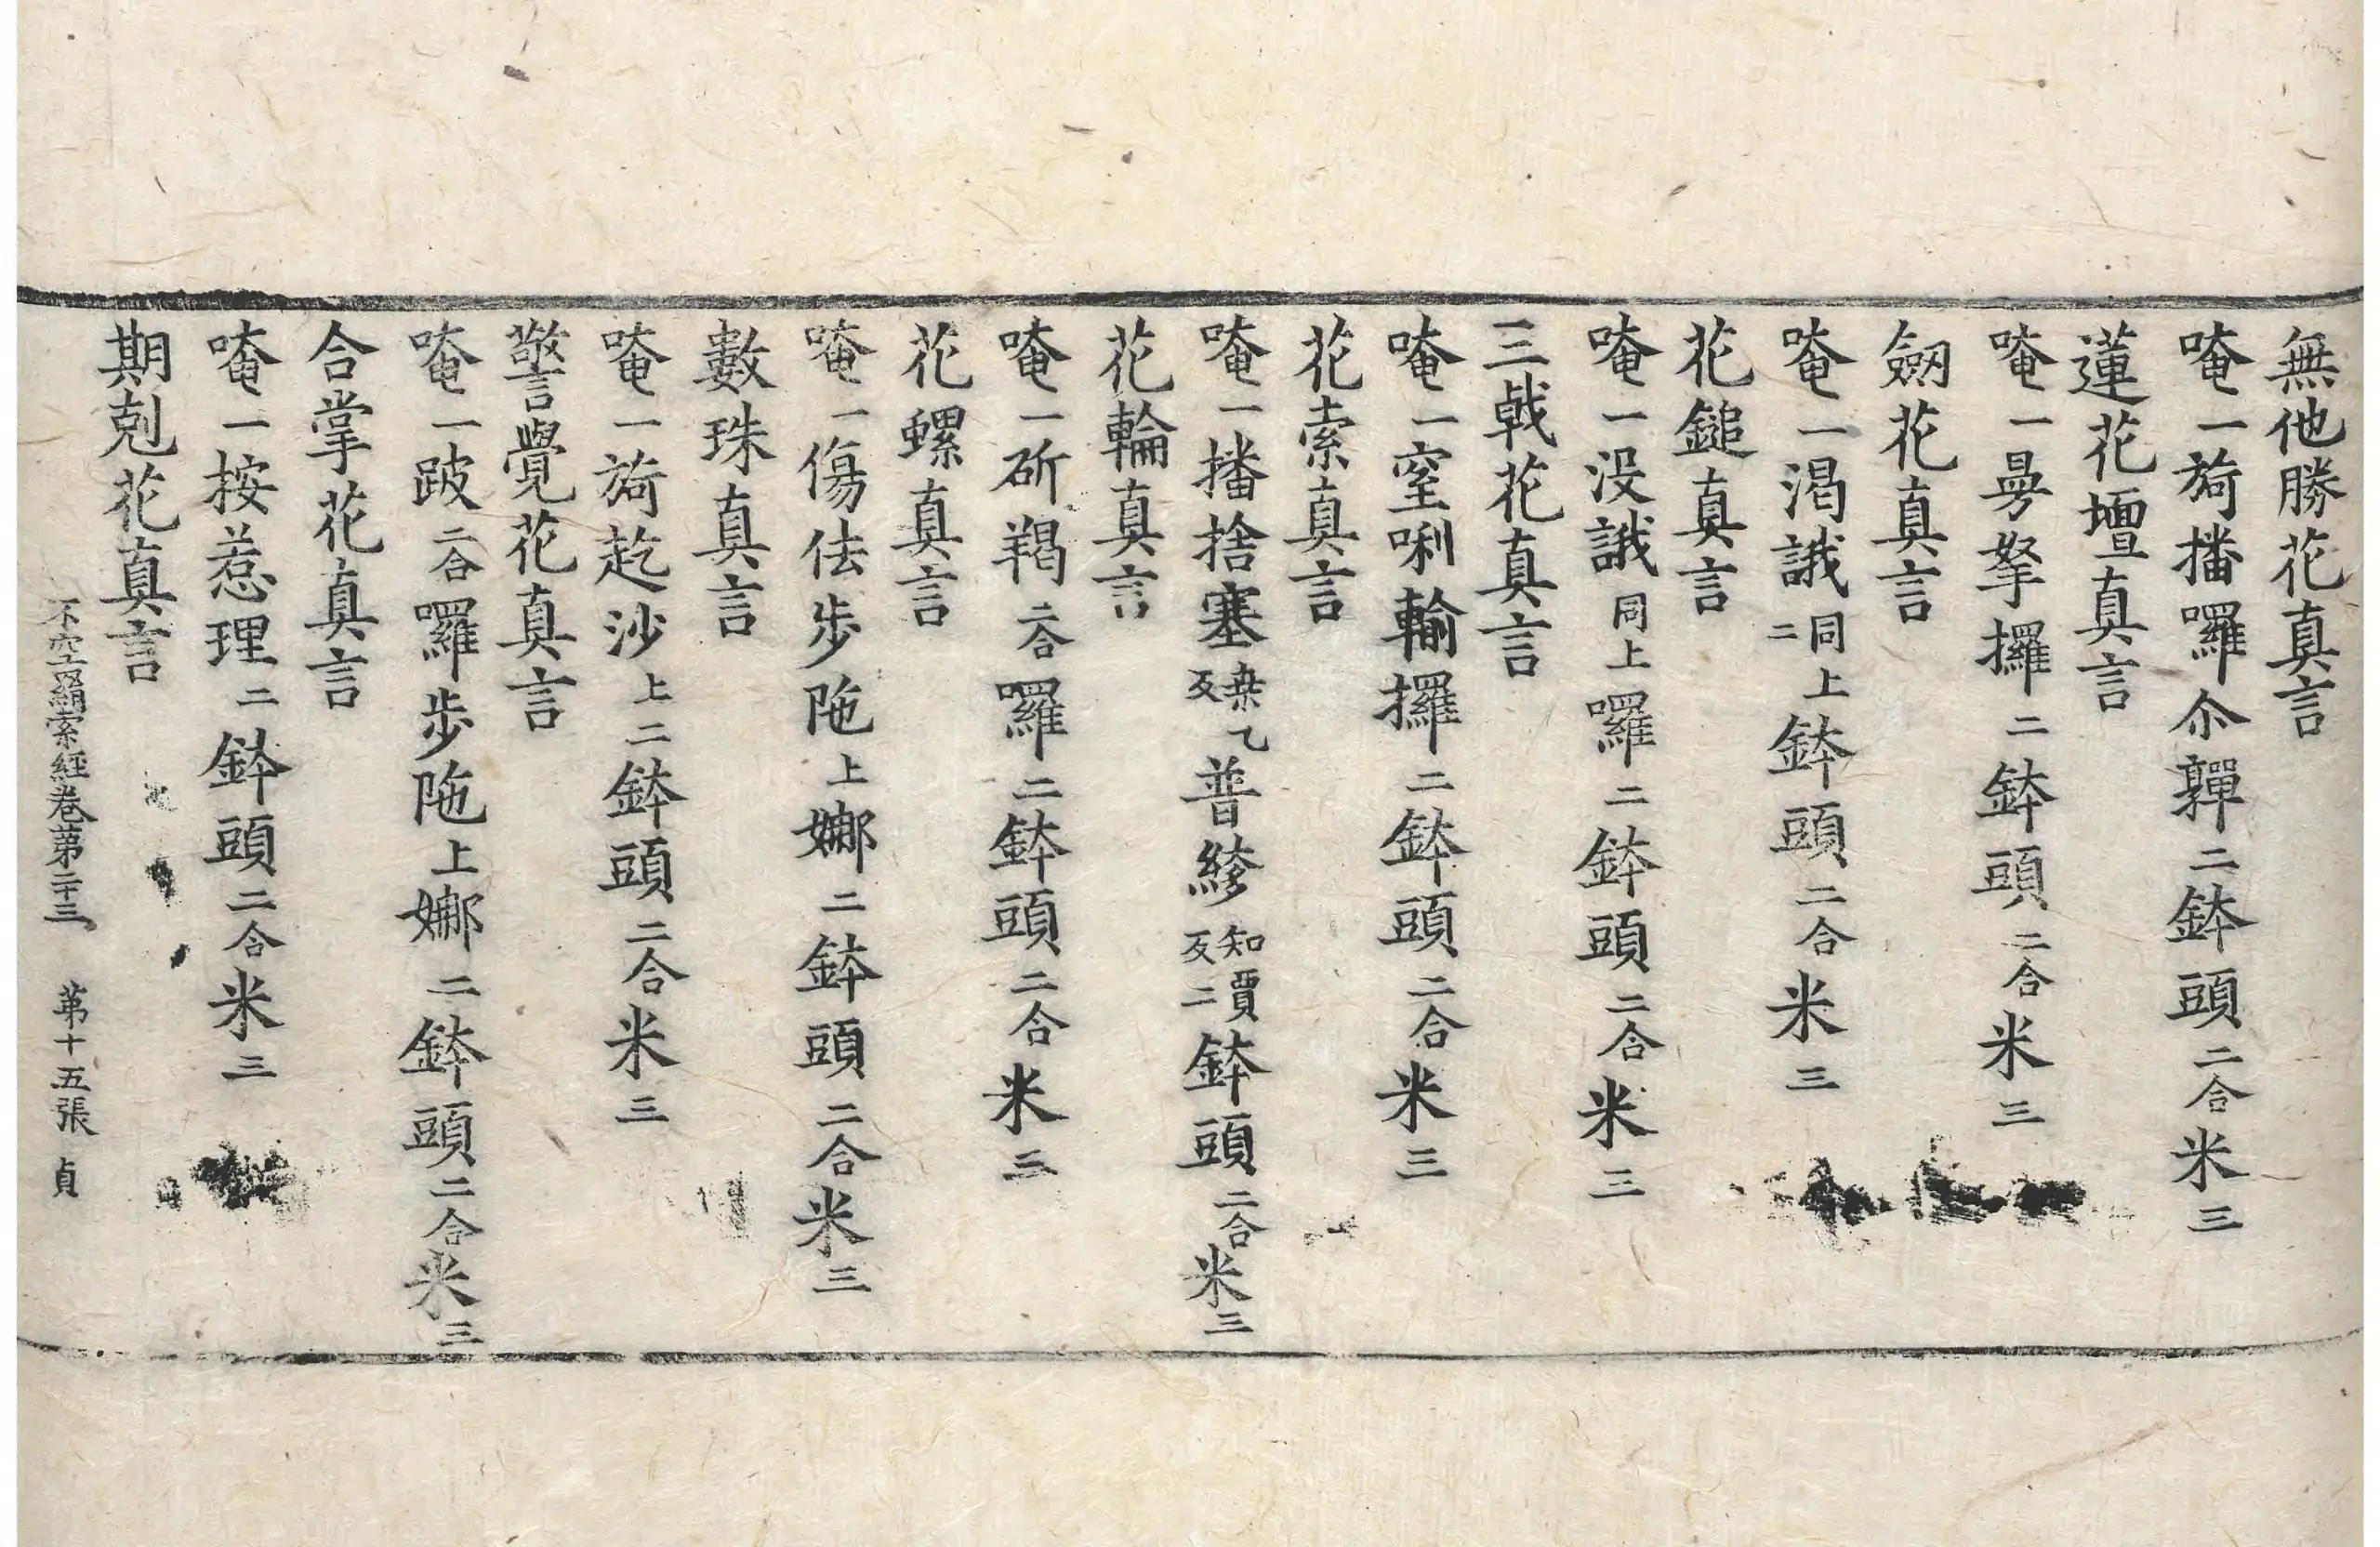 無他勝花真言
唵一旖播囉尒亸二鉢頭二合米三
蓮花壇真言
唵一曼拏攞二鉢頭二合米三
劒花真言
唵一渴誐同上二鉢頭二合米三
花鎚真言
唵一没誐同上囉二鉢頭二合米三
三戟花真言
唵一窒唎輸攞二鉢頭二合米三
花索真言
唵一播捨塞桒乙反普絼知賈反二鉢頭二合米三
花輪真言
唵一斫羯二合囉二鉢頭二合米三
花螺真言
唵一傷佉步陁上娜二鉢頭二合米三
數珠真言
唵一旖訖沙上二鉢頭二合米三
警覺花真言
唵一跛二合囉步陁上娜二鉢頭二合米三
合掌花真言
唵一按惹理二鉢頭二合米三
期剋花真言
不空罥索經卷第二十三 第十五張 貞